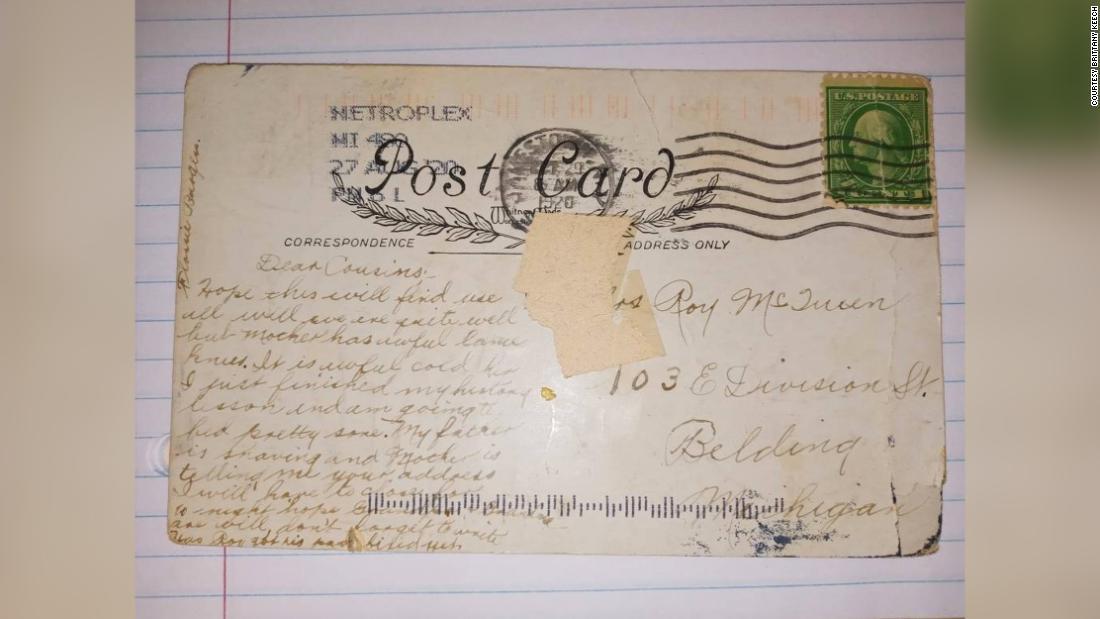 COURTESY BRITTANY KEECH
U.S. POSTAGE
METROPLEX
MI 480
27 AUG '20
PM 6 L
Post Card
1920
CORRESPONDENCE
ADDRESS ONLY
Dear Cousins,
Hope this will find use
all will we are quite well
but Mother has awful lame
knees. It is awful cold
I just finished my history
lesson and am going to
bed pretty sone. My father
is shaving and Mother is
telling me your address
I will have to close
to night hope
are well don't forget to write
Roy got his
Roy McQueen
103 E Division St.
Belding
Michigan